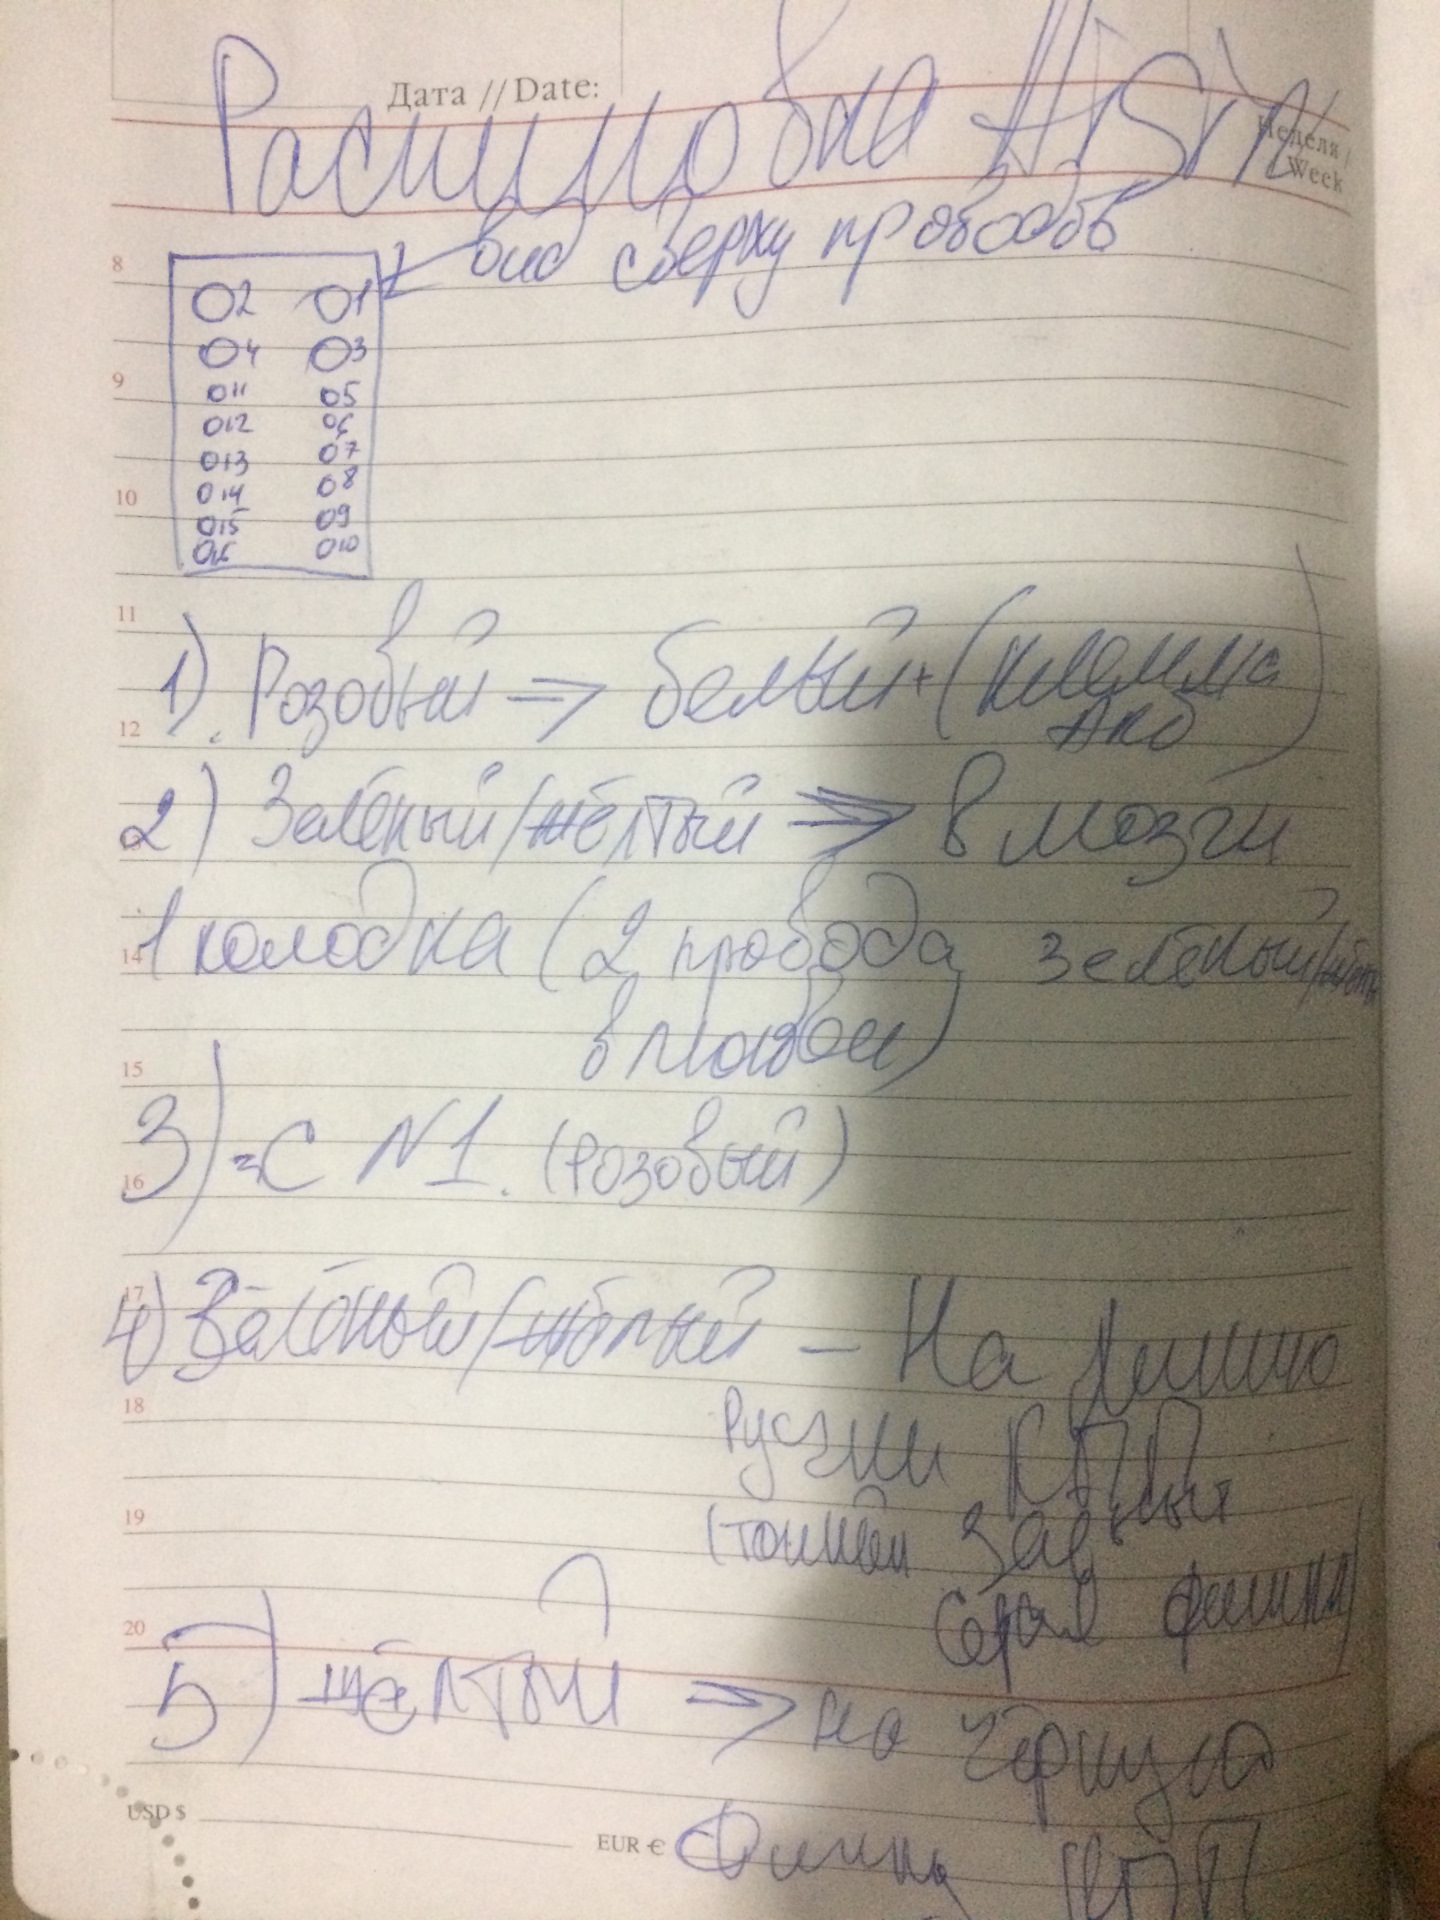 Дата // Date:
Неделя /
Week
Распиновка AiSiN
вид сверху проводов
8
O2 O1
O4 O3
9
O11 O5
O12 O6
O13 O7
10
O14 O8
O15 O9
O16 O10
11
1). Розовый => белый + (клемма
12
АКБ)
13
2) Зелёный/жёлтый => в мозги
1 колодка (2 провода зелёный/жёлт
14
15
3) = С N1. (розовый)
16
17
4) Зелёный/жёлтый - На линию
18
КПП
19
Серая фишка)
20
5) жёлтый => на чёрную
USD $
EUR €
Фишку КПП